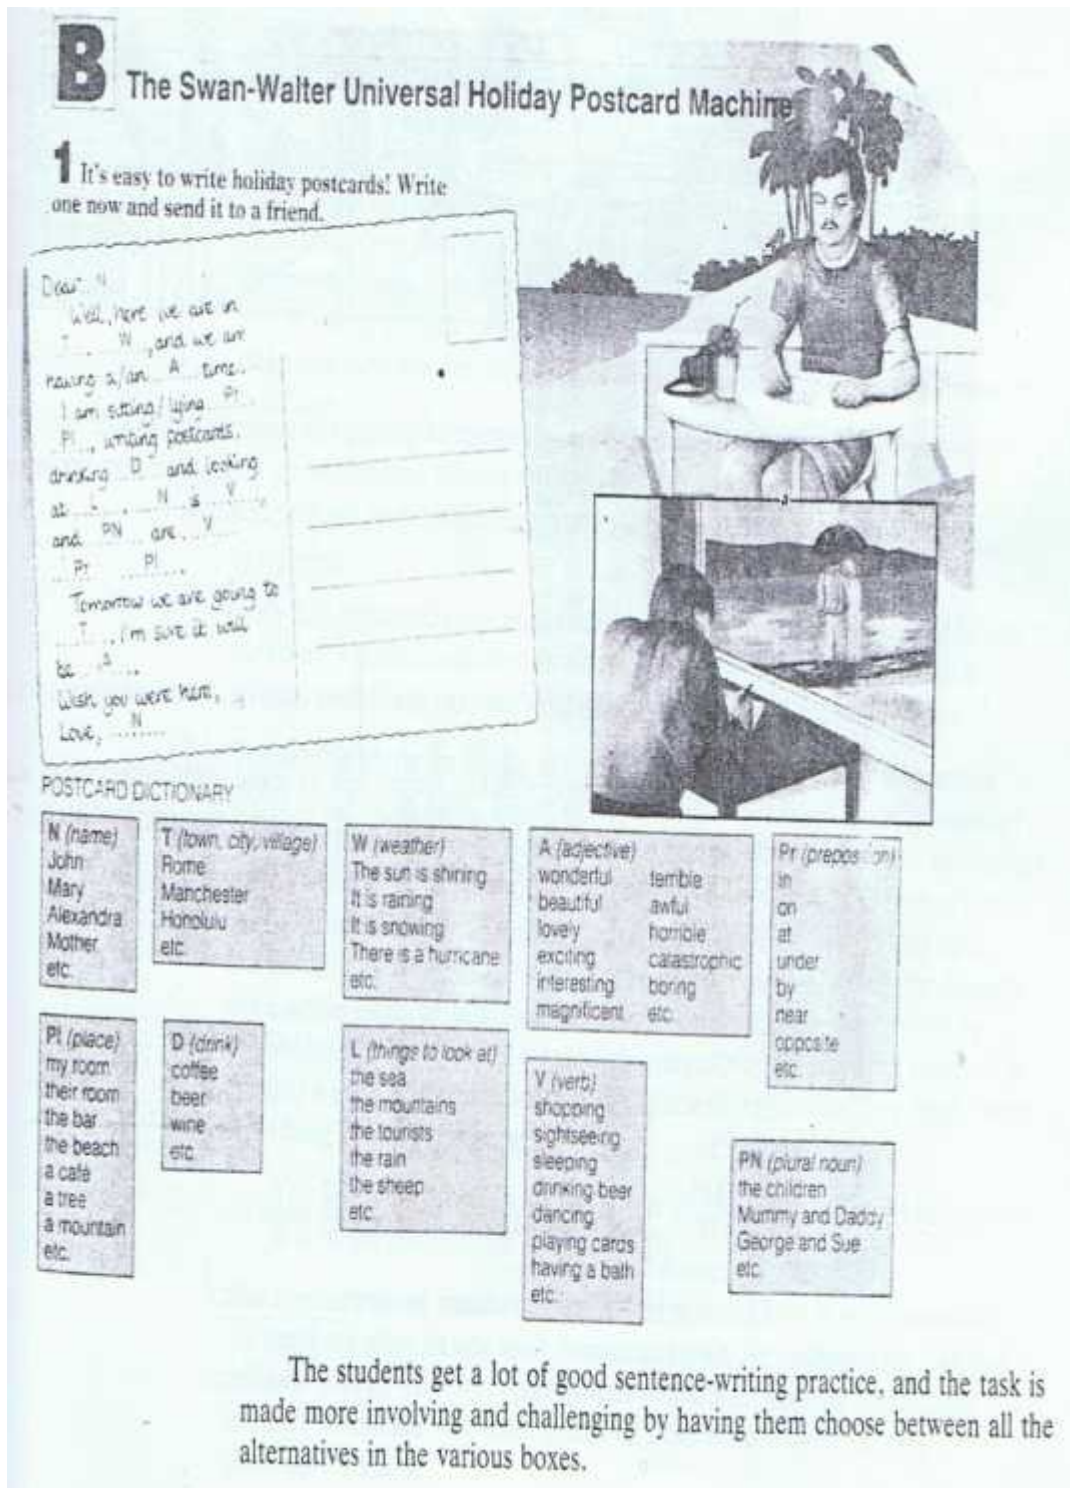 B
The Swan-Walter Universal Holiday Postcard Machine
1 It's easy to write holiday postcards! Write
one now and send it to a friend.
Dear N
Well, here we are in
T W , and we are
having a/an A time.
I am sitting/lying Pr
Pl , writing postcards,
drinking D and looking
at L . N is V ,
and PN are V
Pr Pl .
Tomorrow we are going to
T . I'm sure it will
be A .
Wish you were here,
Love, N
POSTCARD DICTIONARY
N (name)
John
Mary
Alexandra
Mother
etc.
T (town, city, village)
Rome
Manchester
Honolulu
etc.
W (weather)
The sun is shining
It is raining
It is snowing
There is a hurricane
etc.
A (adjective)
wonderful terrible
beautiful awful
lovely horrible
exciting catastrophic
interesting boring
magnificent etc.
Pr (preposition)
in
on
at
under
by
near
opposite
etc.
Pl (place)
my room
their room
the bar
the beach
a café
a tree
a mountain
etc.
D (drink)
coffee
beer
wine
etc.
L (things to look at)
the sea
the mountains
the tourists
the rain
the sheep
etc.
V (verb)
shopping
sightseeing
sleeping
drinking beer
dancing
playing cards
having a bath
etc.
PN (plural noun)
the children
Mummy and Daddy
George and Sue
etc.
The students get a lot of good sentence-writing practice, and the task is
made more involving and challenging by having them choose between all the
alternatives in the various boxes.